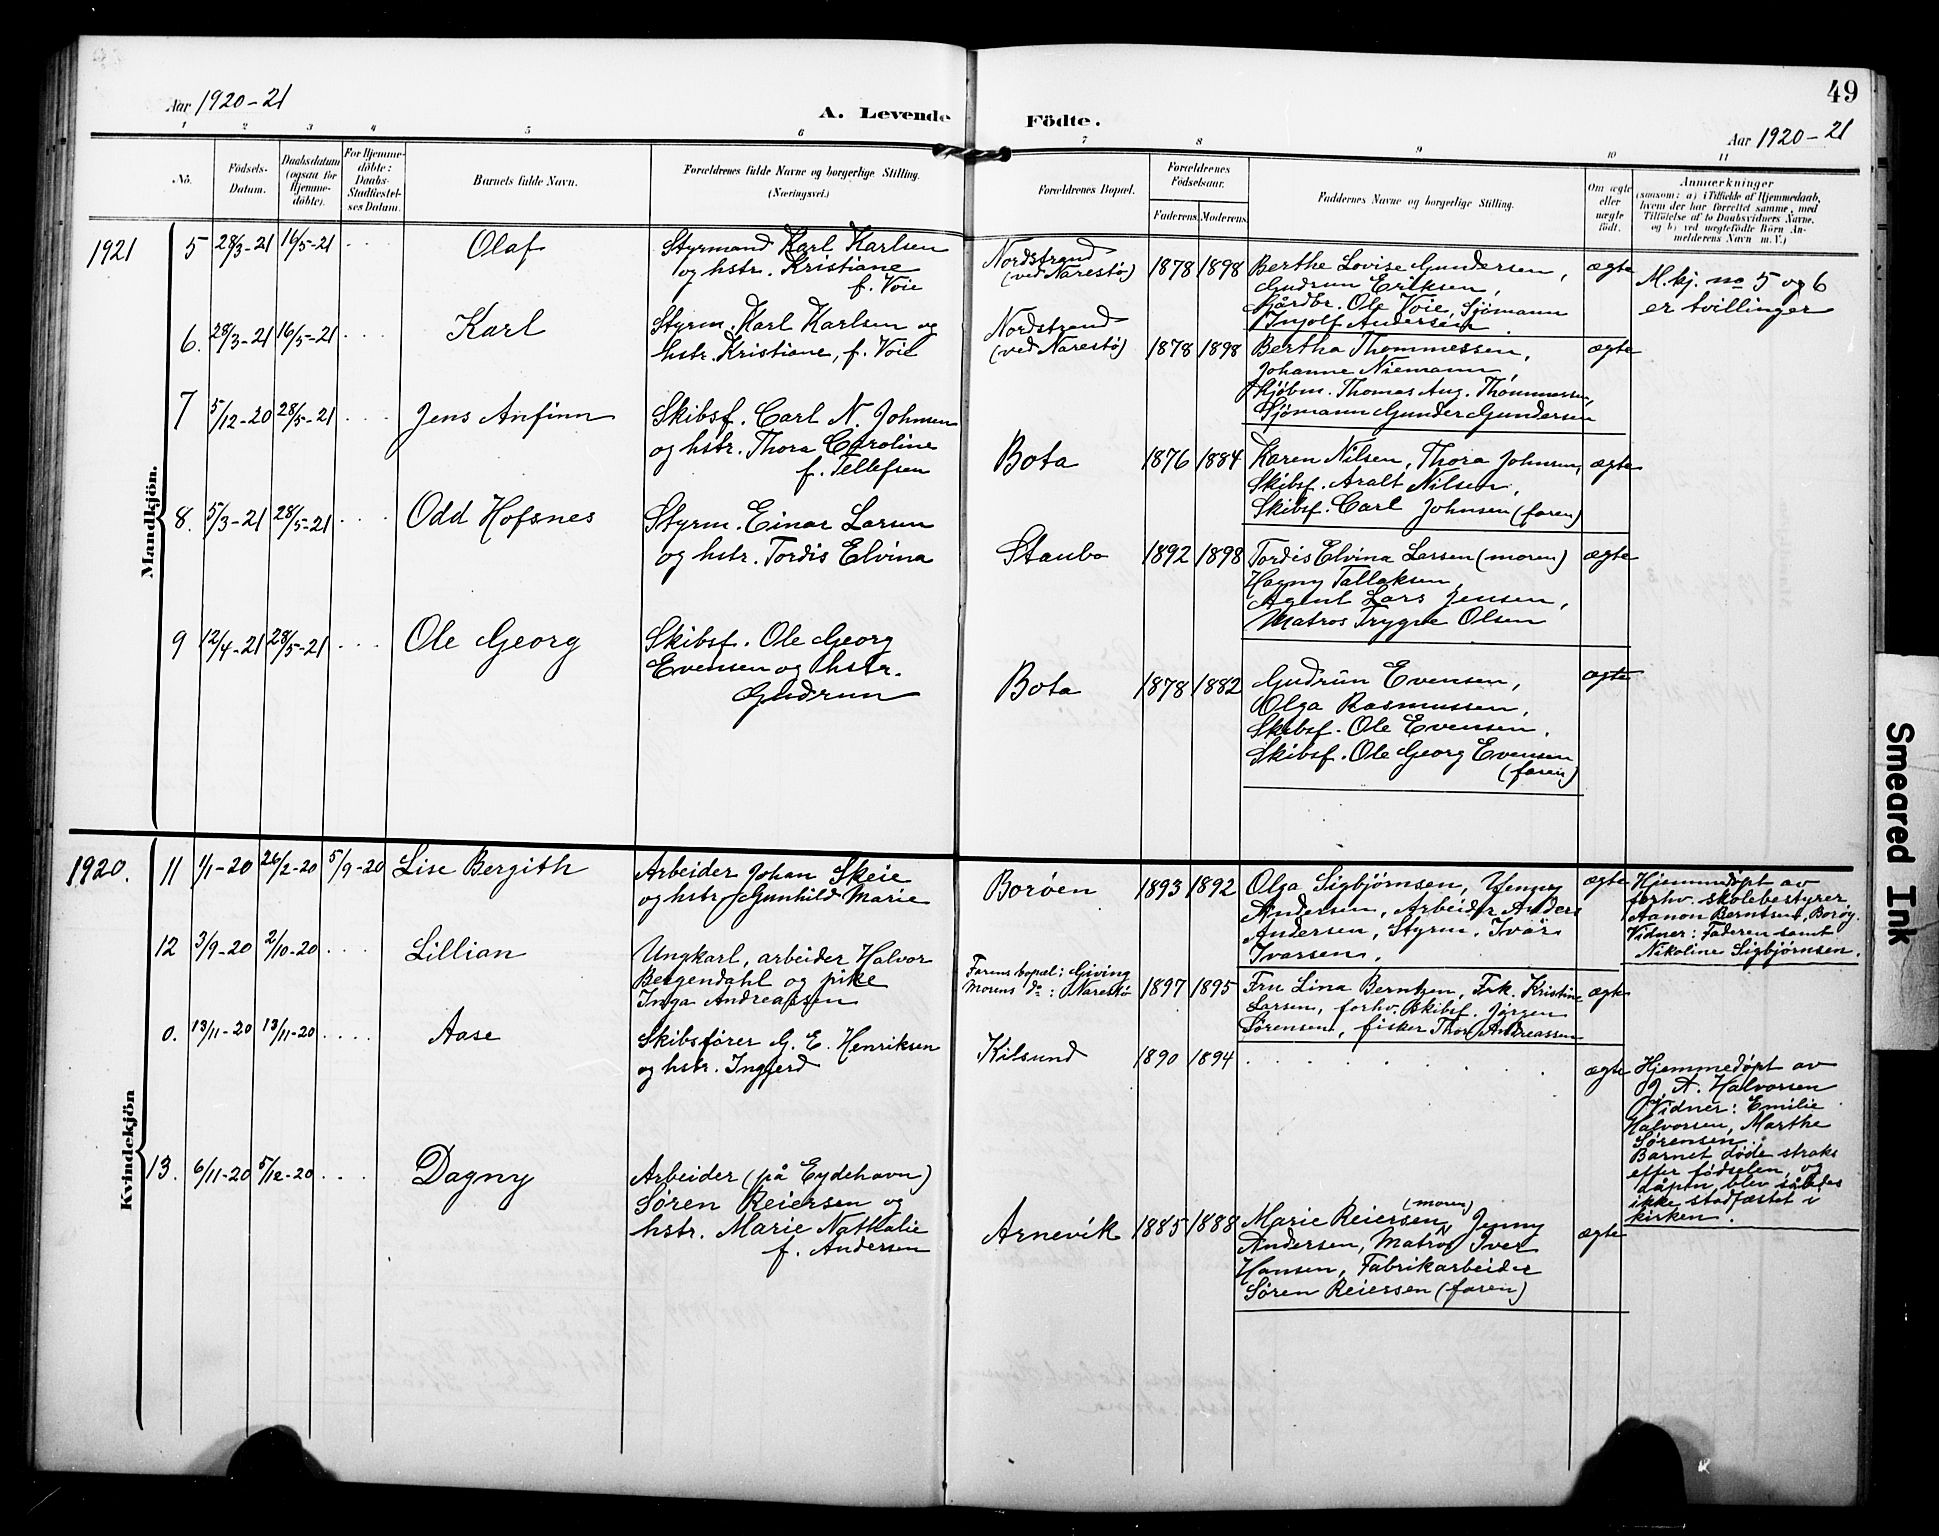 Aar 1920-21
A. Levende Födte.
49
Aar 1920-21
1 2 3 4 5 6 7 8 9 10 11
No.
Födsels-
Datum.
Daabsdatum
(ogsaa for
Hjemme-
döbte).
For Hjemme-
döbte:
Daabs-
Stadfæstel-
ses Datum.
Barnets fulde Navn.
Forældrenes fulde Navne og borgerlige Stilling.
(Næringsvei.)
Forældrenes Bopæl.
Forældrenes
Födselsaar.
Faderens. Moderens.
Faddernes Navne og borgerlige Stilling.
Om ægte
eller
uægte
födt.
Anmærkninger
(saasom: a) i Tilfælde af Hjemmedaab,
hvem der har forrettet samme, med
Tilföielse af to Daabsvidners Navne.
og b) ved uægtefödte Börn An-
melderens Navn m. V.)
Mandkjön.
1921
5 28/3-21 16/5-21 . . . .
Olaf
Styrmand Karl Karlsen
og hstr. Kristiane
f. Voie
Nordstrand
(ved Narestø)
1878 1898
Berthe Lovise Gundersen,
Gudrun Eriksen,
Gårdbr. Ole Voie, Sjømann
Ingolf Andersen
ægte
M.kj. no 5 og 6
er tvillinger
6. 28/3-21 16/5-21 . . . .
Karl
Styrm. Karl Karlsen og
hstr. Kristiane, f. Voie
Nordstrand
(ved Narestø)
1878 1898
Bertha Thommessen,
Johanne Niemann,
Kjøbm. Thomas Aug. Thommessen,
Sjømann Gunder Gundersen
ægte
7 5/12-20 28/5-21 . . . .
Jens Anfinn
Skibsf. Carl N. Johnsen
og hstr. Thora Caroline
f. Tellefsen
Bota
1876 1884
Karen Nilsen, Thora Johnsen,
Skibsf. Aralt Nilsen,
Skibsf. Carl Johnsen (faren)
ægte
8. 5/3-21 28/5-21 . . . .
Odd Hofsnes
Styrm. Einar Larsen
og hstr. Tordis Elvina
Staubo
1892 1898
Tordis Elvina Larsen (moren)
Hagny Tallaksen,
Agent Lars Jensen,
Matros Trygve Olsen
ægte
9 12/4-21 28/5-21 . . . .
Ole Georg
Skibsf. Ole Georg
Evensen og hstr.
Gudrun
Bota
1878 1882
Gudrun Evensen,
Olga Rasmussen,
Skibsf. Ole Evensen,
Skibsf. Ole Georg Evensen
(faren)
ægte
Kvindekjön
1920.
11 1/1-20 26/2-20 5/9-20
Lise Bergith
Arbeider Johan Skeie
og hstr. Gunhild Marie
Borøen
1893 1892
Olga Sigbjørnsen,
Andersen, Arbeider Anders
Andersen, Styrm. Ivar
Ivarsen.
ægte
Hjemmedøpt av
forhv. skolebestyrer
Aanon Berntsen, Borøy.
Vidner: Faderen samt
Nikoline Sigbjørnsen.
12 3/9-20 2/10-20 . . . .
Lillian
Ungkarl, arbeider Halvor
Bergendahl og pike
Inga Andreassen
Farens bopæl: Giving
Morens do: Narestø
1897 1895
Fru Lina Berntzen, Frk. Kristine
Larsen, forhv. skibsf. Jørgen
Sörensen, fisker Thor Andreassen
ægte
0. 13/11-20 13/11-20 . . . .
Aase
Skibsfører G. E. Henriksen
og hstr. Ingjerd
Kilsund
1890 1894
. . . . . . .
ægte
Hjemmedøpt av
J. A. Halvorsen
Vidner: Emilie
Halvorsen, Marthe
Sørensen.
Barnet døde straks
efter fødselen, og
dåpen blev således
ikke stadfæstet i
kirken.
13. 6/11-20 5/12-20 . . . .
Dagny
Arbeider (på Eydehavn)
Søren Reiersen og
hstr. Marie Nathalie
f. Andersen
Arnevik
1885 1888
Marie Reiersen (moren), Jenny
Andersen, Matros Iver
Hansen, Fabrikarbeider
Søren Reiersen (faren)
ægte
Smeared Ink